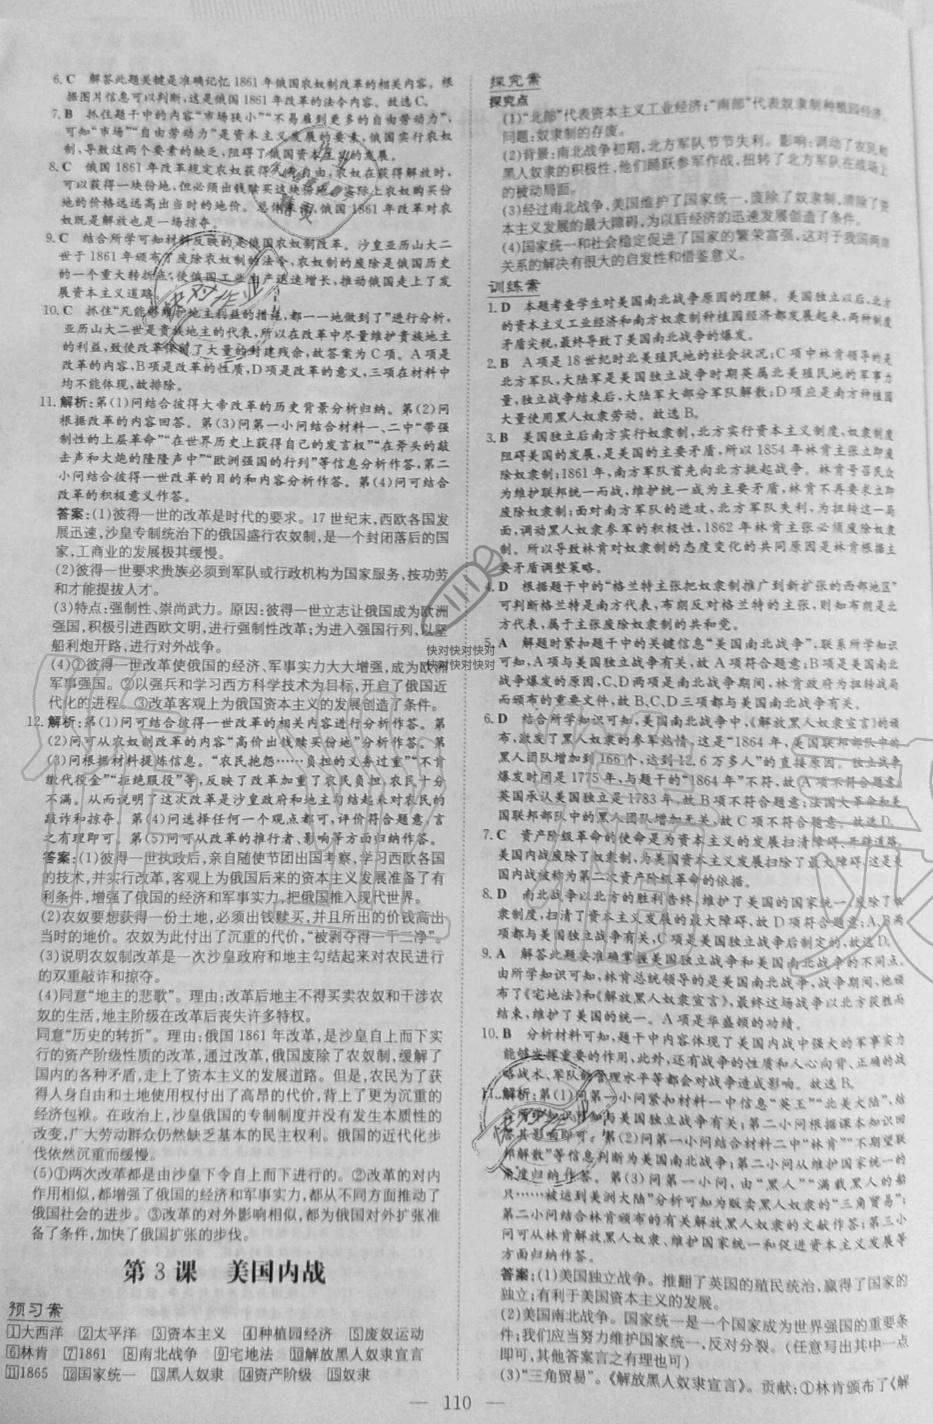 6. C　解答此题关键是准确记忆1861年俄国农奴制改革的相关内容。根
据图片信息可以判断,这是俄国1861年改革的法令内容。故选C。
7. B　抓住题干中的内容“市场狭小”“不易雇到更多的自由劳动力”,
可知“市场”“自由劳动力”是资本主义发展的要素,俄国实行农奴
制,导致这两个要素的缺乏,阻碍了俄国资本主义的发展。
8. C　俄国1861年改革规定农奴获得人身自由,农奴在获得解放时,
可以获得一块份地,但必须出钱赎买这块份地,实际上农奴购买份
地的价格远远高出当时的地价。总体来说,俄国1861年改革对农
奴既是解放也是一场掠夺。
9. C　结合所学可知材料反映的是俄国农奴制改革。沙皇亚历山大二
世于1861年颁布了废除农奴制的法令,农奴制的废除是俄国历史
的一个重大转折点,使俄国工业生产迅速增长,推动俄国走上了发
展资本主义道路。
10. C　抓住“凡能够维护地主利益的措施,都一一地做到了”进行分析,
亚历山大二世是贵族地主的代表,所以在改革中尽量维护贵族地主
的利益,致使改革保留了大量的封建残余,故答案为C项。A项是
改革的内容,B项是改革的性质,D项是改革的意义,三项在材料中
均不能体现,故排除。
11. 解析:第(1)问结合彼得大帝改革的历史背景分析归纳。第(2)问
根据改革的内容回答。第(3)问第一小问结合材料一、二中“带强
制性的上层革命”“在世界历史上获得自己的发言权”“在斧头的敲
击声和大炮的隆隆声中”“欧洲强国的行列”等信息分析作答,第二
小问结合彼得一世改革的目的和内容分析作答。第(4)问可结合
改革的积极意义作答。
答案:(1)彼得一世的改革是时代的要求。17世纪末,西欧各国发
展迅速,沙皇专制统治下的俄国盛行农奴制,是一个封闭落后的国
家,工商业的发展极其缓慢。
(2)彼得一世要求贵族必须到军队或行政机构为国家服务,按功劳
和才能提拔人才。
(3)特点:强制性、崇尚武力。原因:彼得一世立志让俄国成为欧洲
强国,积极引进西欧文明,进行强制性改革;为进入强国行列,以坚
船利炮开路,进行对外战争。
(4)①彼得一世改革使俄国的经济、军事实力大大增强,成为欧洲
军事强国。②以强兵和学习西方科学技术为目标,开启了俄国近
代化的进程。③改革客观上为俄国资本主义的发展创造了条件。
12. 解析:第(1)问可结合彼得一世改革的相关内容进行分析作答。第
(2)问可从农奴制改革的内容“高价出钱赎买份地”分析作答。第
(3)问根据材料提炼信息。“农民抱怨……负担的义务过重”“不肯
缴代役金”“拒绝服役”等,反映了改革加重了农民负担,农民十分
不满。从而说明了这次改革是沙皇政府和地主勾结起来对农民的
敲诈和掠夺。第(4)问选择任何一个观点都可,评价符合题意,言
之有理即可。第(5)问可从改革的推行者、影响等方面归纳作答。
答案:(1)彼得一世执政后,亲自随使节团出国考察,学习西欧各国
的技术,并实行改革,客观上为俄国后来的资本主义发展准备了有
利条件,增强了俄国的经济和军事实力,把俄国推入现代世界。
(2)农奴要想获得一份土地,必须出钱赎买,并且所出的价钱高出
当时的地价。农奴为此付出了沉重的代价,“被剥夺得一干二净”。
(3)说明农奴制改革是一次沙皇政府和地主勾结起来对农民进行
的双重敲诈和掠夺。
(4)同意“地主的悲歌”。理由:改革后地主不得买卖农奴和干涉农
奴的生活,地主阶级在改革后丧失许多特权。
同意“历史的转折”。理由:俄国1861年改革,是沙皇自上而下实
行的资产阶级性质的改革,通过改革,俄国废除了农奴制,缓解了
国内的各种矛盾,走上了资本主义的发展道路。但是,农民为了获
得人身自由和土地使用权付出了高昂的代价,背上了更为沉重的
经济包袱。在政治上,沙皇俄国的专制制度并没有发生本质性的
改变,广大劳动群众仍然缺乏基本的民主权利。俄国的近代化步
伐依然沉重而缓慢。
(5)①两次改革都是由沙皇下令自上而下进行的。②改革的对内
作用相似,都增强了俄国的经济和军事实力,都从不同方面推动了
俄国社会的进步。③改革的对外影响相似,都为俄国对外扩张准
备了条件,加快了俄国扩张的步伐。
第3课　美国内战
预习案
①大西洋　②太平洋　③资本主义　④种植园经济　⑤废奴运动
⑥林肯　⑦1861　⑧南北战争　⑨宅地法　⑩解放黑人奴隶宣言
⑪1865　⑫国家统一　⑬黑人奴隶　⑭资产阶级　⑮奴隶
探究案
探究点
(1)“北部”代表资本主义工业经济;“南部”代表奴隶制种植园经济。
问题:奴隶制的存废。
(2)背景:南北战争初期,北方军队节节失利。影响:调动了农民和
黑人奴隶的积极性,他们踊跃参军作战,扭转了北方军队在战场上
的被动局面。
(3)经过南北战争,美国维护了国家统一,废除了奴隶制,清除了资
本主义发展的最大障碍,为以后经济的迅速发展创造了条件。
(4)国家统一和社会稳定促进了国家的繁荣富强,这对于我国两岸
关系的解决有很大的启发性和借鉴意义。
训练案
1. D　本题考查学生对美国南北战争原因的理解。美国独立以后,北方
的资本主义工业经济和南方奴隶制种植园经济都发展起来,两种制度
矛盾尖锐,最终导致了美国南北战争的爆发。
2. B　A项是18世纪时北美殖民地的社会状况;C项中林肯领导的是
北方军队,大陆军是美国独立战争时期英属北美殖民地的军事力
量,独立战争结束后,大陆军大部分军队解散;D项应是南方种植园
大量使用黑人奴隶劳动。故选B。
3. B　美国独立后南方实行奴隶制,北方实行资本主义制度,奴隶制度
阻碍美国的发展,是美国的主要矛盾,所以1854年林肯主张立即废
除奴隶制;1861年,南方军队首先向北方挑起战争。林肯号召民众
为维护联邦统一而战,维护统一成为主要矛盾,林肯不再要求立即
废除奴隶制;面对南方军队的进攻,北方军队失利,为扭转这一局
面,调动黑人奴隶参军的积极性,1862年林肯主张必须废除奴隶
制。所以导致林肯对奴隶制的态度变化的共同原因是林肯根据主
要矛盾调整策略。
4. D　根据题干中的“格兰特主张把奴隶制推广到新扩张的西部地区”
可判断格兰特是南方代表,布朗反对格兰特的主张,则知布朗是北
方代表,属于主张废除奴隶制的共和党。
5. A　解题时紧扣题干中的关键信息“美国南北战争”,联系所学知识
可知,A项与美国独立战争有关,故A项符合题意;B项是美国南北
战争爆发的原因,C、D两项是南北战争期间,林肯政府为扭转战局
而颁布的重要文件,故B、C、D三项都与美国南北战争有关。
6. D　结合所学知识可知,美国南北战争中,《解放黑人奴隶宣言》的颁
布,激发了黑人奴隶的参军热情。这是“1864年,美国联邦部队中的
黑人团队增加到166个,达到12.6万多人”的直接原因。独立战争
爆发时间是1775年,与题干的“1864年”不符,故A项不符合题意;
英国承认美国独立是1783年,故B项不符合题意;法国大革命和美
国联邦部队中的黑人团队增加无关,故C项不符合题意。故选D。
7. C　资产阶级革命的使命是为资本主义的发展扫清障碍、开辟道路,
美国内战废除了奴隶制,为美国资本主义发展扫除了最大障碍,这是美
国内战被称为第二次资产阶级革命的依据。
8. D　南北战争以北方的胜利告终,维护了美国的国家统一,废除了奴
隶制度,扫清了资本主义发展的最大障碍,故D项符合题意;A、B两
项都与美国独立战争有关,C项是美国独立战争后制定的,故选D。
9. A　解答此题要准确掌握美国独立战争和美国南北战争的不同点。
由所学知识可知,林肯总统领导的是美国南北战争,战争期间,他颁
布了《宅地法》和《解放黑人奴隶宣言》,最终这场战争以北方获胜而
结束,维护了美国的统一。A项是华盛顿的功绩。
10. B　分析材料可知,题干中内容体现了美国内战中强大的军事实力
能够发挥重要的作用,此外,还有战争的性质和人心向背、正确的战
略战术、军队的管理水平等都会对战争造成影响。故选B。
11. 解析:第(1)问第一小问紧扣材料一中信息“英王”“北美大陆”,结
合所学知识可知为美国独立战争有关;第二小问根据课本知识回
答其影响即可。第(2)问第一小问结合材料二中“林肯”“不期望联
邦解散”等信息判断为美国南北战争;第二小问从维护国家统一的
角度归纳作答。第(3)问第一小问,由“黑人”“满载黑人的船
只……被运到美洲大陆”分析可知为贩卖黑人奴隶的“三角贸易”;
第二小问结合林肯颁布的有关解放黑人奴隶的文献作答;第三小
问可从林肯解放黑人奴隶、维护国家统一和促进资本主义发展等
方面归纳作答。
答案:(1)美国独立战争。推翻了英国的殖民统治,赢得了国家的
独立;有利于美国资本主义的发展。
(2)美国南北战争。国家统一是一个国家成为世界强国的重要条
件;我们应当努力维护国家统一,反对分裂。(任意写出其中一点
即可,其他答案言之有理也可)
(3)“三角贸易”。《解放黑人奴隶宣言》。贡献:①林肯颁布了《解
110
快对快对快对
快对快对快对
快对作业